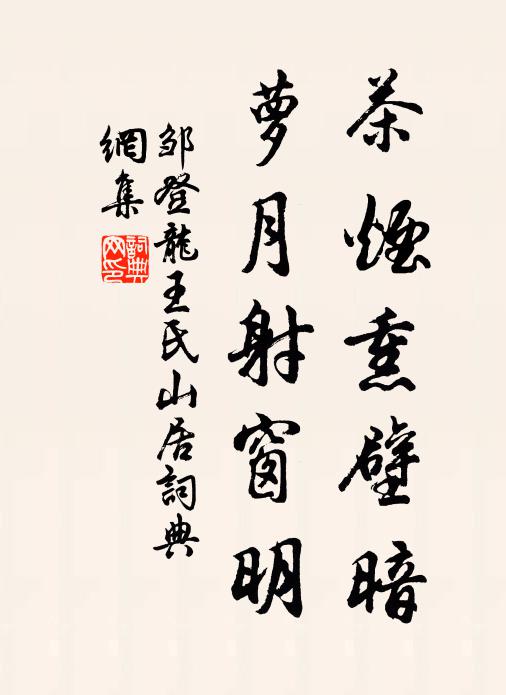 茶煙熏壁暗
夢月射窗明
邹登龍王氏山居詞典
網集
詞典
网印